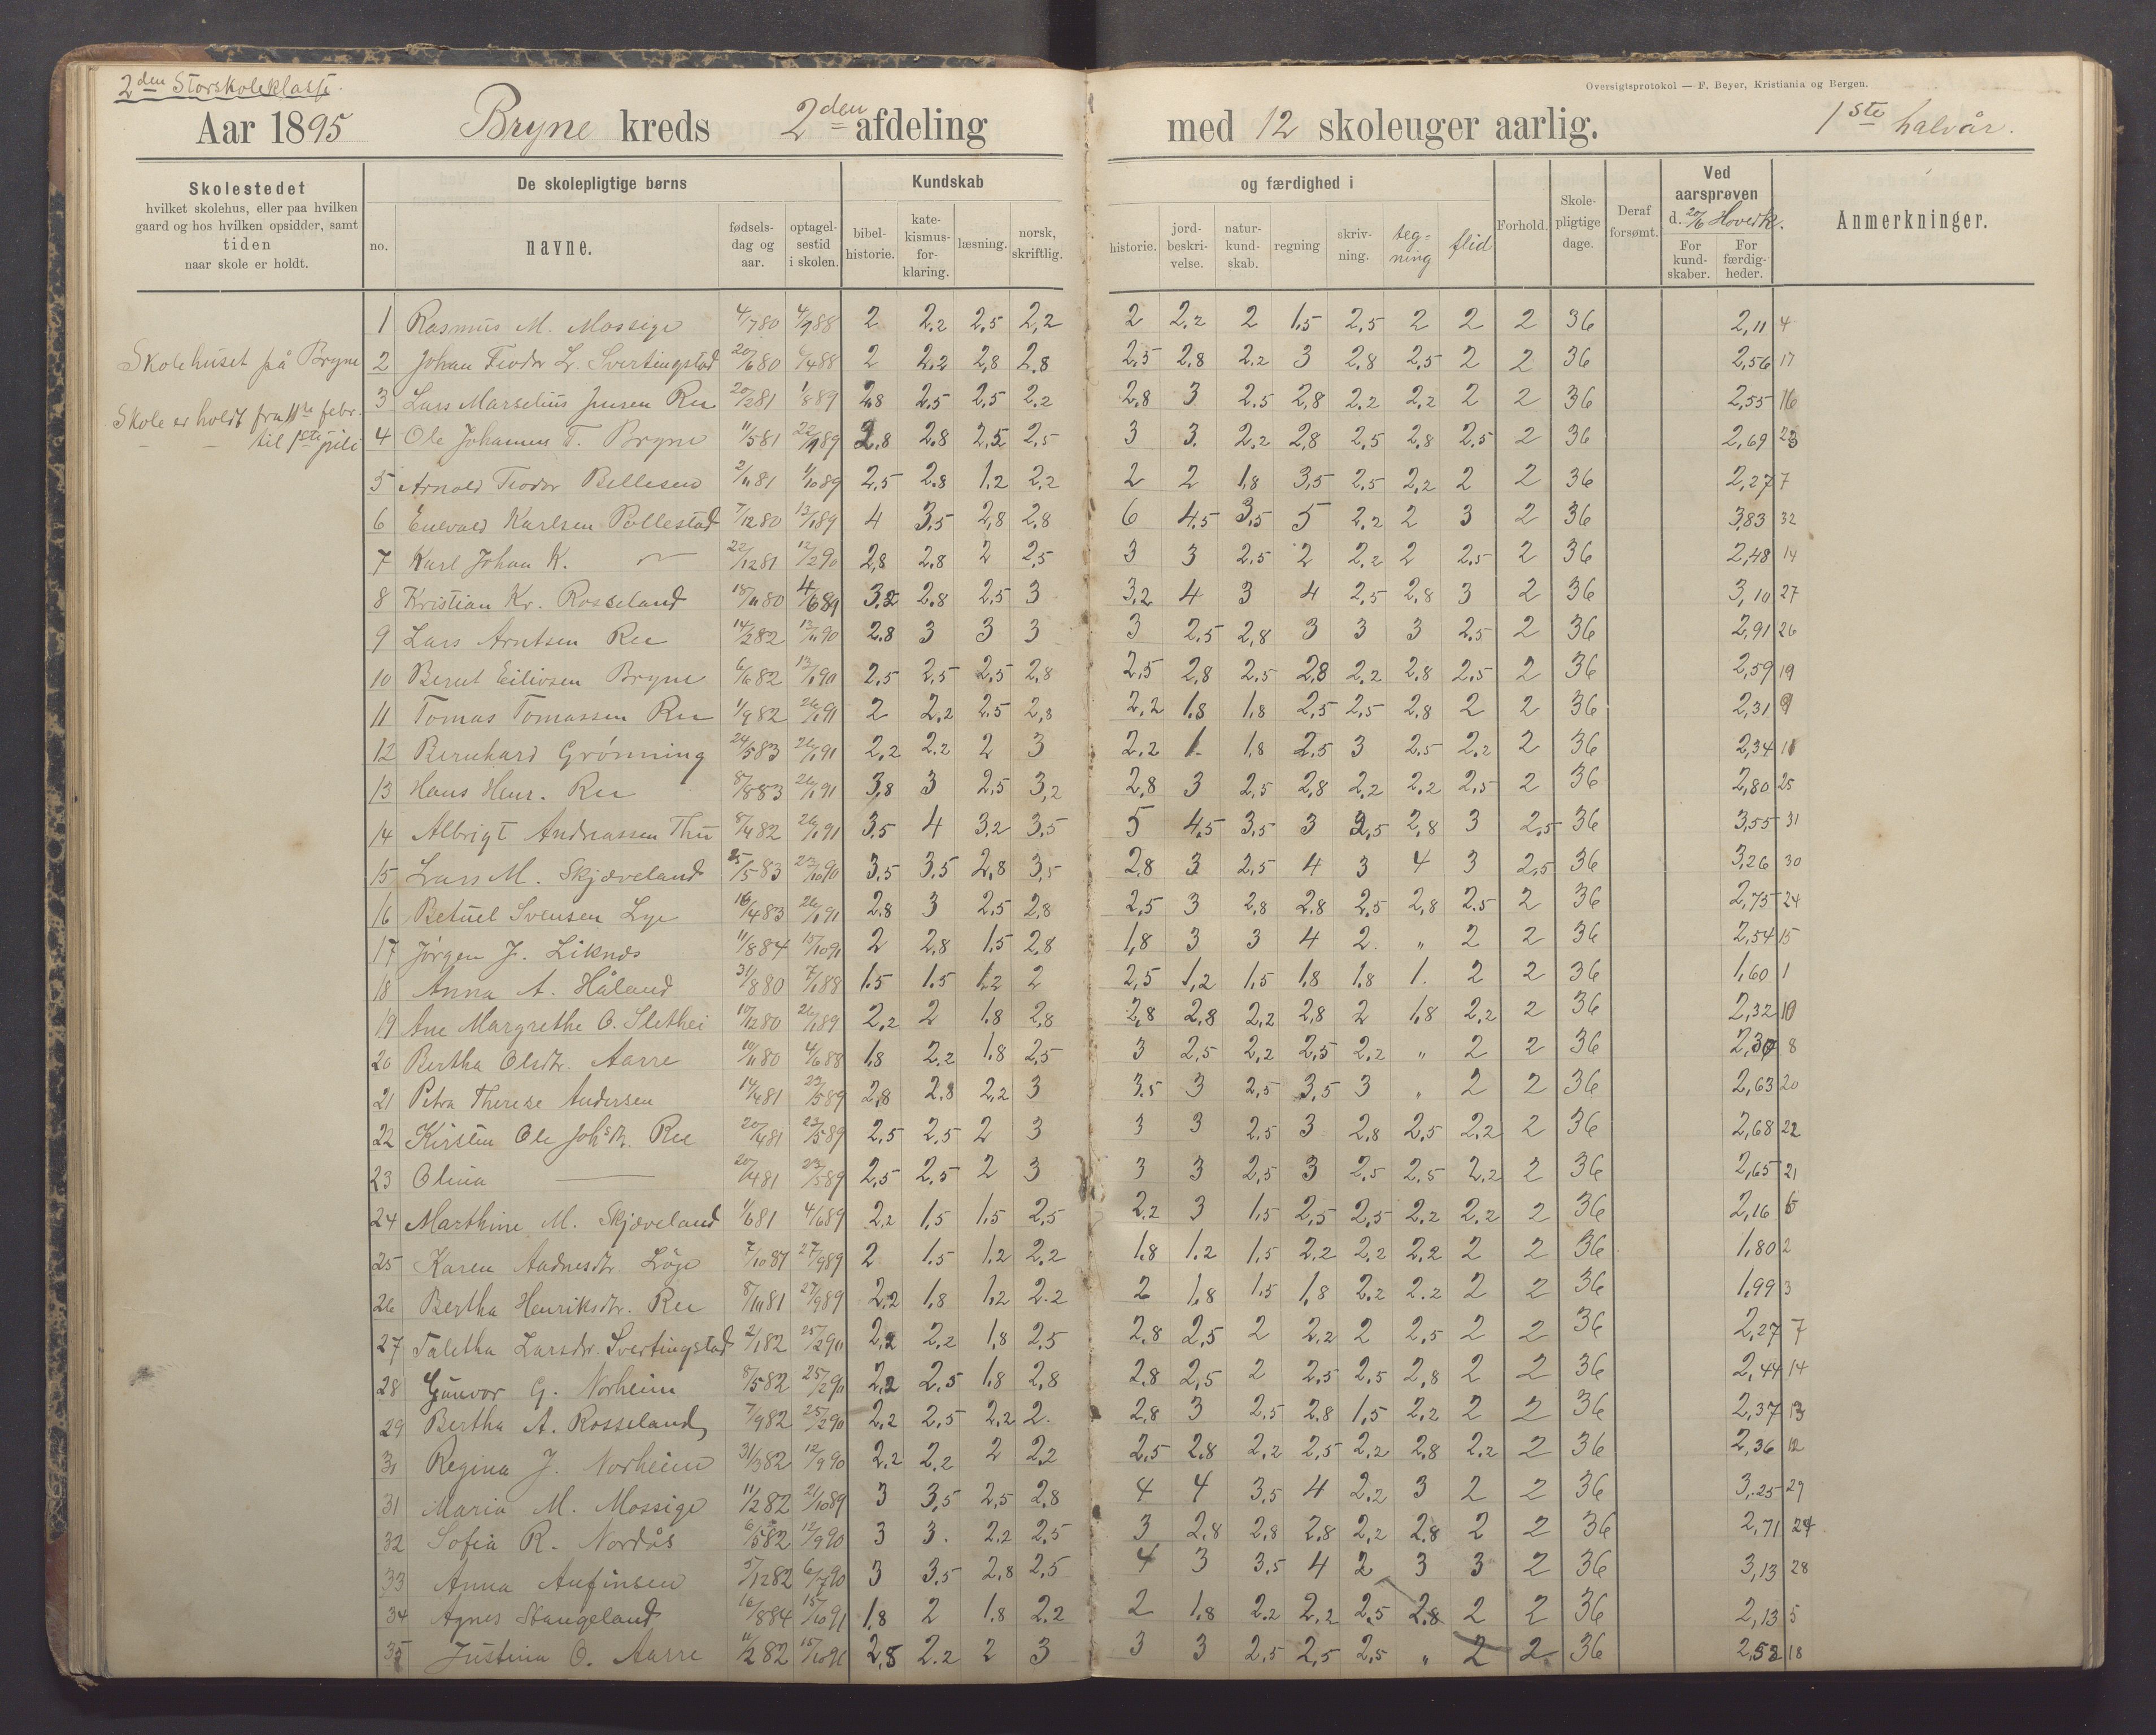 2den Storskoleklasse.
Oversigtsprotokol — F. Beyer, Kristiania og Bergen.
Aar 1895 Bryne kreds 2den afdeling med 12 skoleuger aarlig. 1ste halvår.
Skolestedet hvilket skolehus, eller paa hvilken gaard og hos hvilken opsidder, samt tiden naar skole er holdt.
De skolepligtige børns
no. navne. fødsels-dag og aar. optagel-sestid i skolen.
Kundskab og færdighed i
bibel-historie. kate-kismus-for-klaring. læsning. norsk, skriftlig. historie. jord-beskri-velse. natur-kund-skab. regning skriv-ning. teg-ning flid
Forhold. Skole-pligtige dage. Deraf forsømt.
Ved aarsprøven d. 20/6 Hoverk.
For kund-skaber. For færdig-heder.
Anmerkninger.
Skolehuset på Bryne
Skole er holdt fra 11te febr.
til 1ste juli
1 Rasmus M. Mossige 4/7 80 4/7 88 2 2,2 2,5 2,2 2 2,2 2 1,5 2,5 2 2 2 36 2,11 4
2 Johan Teodor L. Svertingstad 20/6 80 /4 88 2 2,2 2,8 2,8 2,5 2,8 2,2 3 2,8 2,5 2 2 36 2,56 17
3 Lars Marselius Jensen Ree 20/2 81 1/8 89 2,8 2,5 2,5 2,2 2,8 3 2,5 2,8 2,2 2,2 2 2 36 2,55 16
4 Ole Johannes T. Bryne 11/5 81 89 2,8 2,8 2,5 2,5 3 3 2,2 2,8 2,5 2,8 2,5 2 36 2,69 23
5 Arnold Teodor Bellesen 2/11 81 1/10 89 2,5 2,8 1,2 2,2 2 2 1,8 3,5 2,5 2,2 2 2 36 2,27 7
6 Enevald Karlsen Pollestad 7/12 80 13/1 89 4 3,5 2,8 2,8 6 4,5 3,5 5 2,2 2 3 2 36 3,83 32
7 Karl Johan K. 〃 22/12 81 12/2 90 2,8 2,8 2 2,5 3 3 2,5 2 2,2 2 2,5 2 36 2,48 14
8 Kristian Kr. Rosseland 18/11 80 4/6 89 3,2 2,8 2,5 3 3,2 4 3 4 2,5 2,8 3 2 36 3,10 27
9 Lars Arntsen Ree 14/2 82 13/11 90 2,8 3 3 3 3 2,5 2,8 3 3 3 2,5 2 36 2,91 26
10 Bernt Eilivsen Bryne 6/6 82 13/1 90 2,5 2,5 2,5 2,8 2,5 2,8 2,5 2,8 2,2 2,8 2,5 2 36 2,59 19
11 Tomas Tomassen Ree 1/9 82 26/1 91 2 2,2 2,5 2,8 2,2 1,8 1,8 2,5 2,5 2,8 2 2 36 2,31 9
12 Bernhard Grønning 24/5 83 26/1 91 2,2 2,2 2 3 2,2 1. 1,8 2,5 3 2,5 2,2 2 36 2,34 11
13 Hans Henr. Ree 8/8 83 26/1 91 3,8 3 2,5 3,2 2,8 3 2,5 2,8 2,2 2,2 2,5 2 36 2,80 25
14 Albrigt Andreassen Thu 8/4 82 26/1 91 3,5 4 3,2 3,5 5 4,5 3,5 3 2,5 2,8 3 2,5 36 3,55 31
15 Lars M. Skjæveland 25/5 83 23/10 90 3,5 3,5 2,8 3,5 2,8 3 2,5 4 3 4 3 2,5 36 3,26 30
16 Betuel Svensen Lye 16/4 83 26/1 91 2,8 3 2,5 2,8 2,5 3 2,8 2,8 2,5 2,8 2,5 2 36 2,75 24
17 Jørgen J. Liknes 11/8 84 15/10 91 2 2,8 1,5 2,8 1,8 3 3 4 2. „ 2 2 36 2,54 15
18 Anna A. Håland 31/8 80 7/1 88 1,5 1,5 1,2 2 2,5 1,2 1,5 1,8 1,8 1. 2 2 36 1,60 1
19 Ane Margrethe O. Slethei 10/12 80 26/1 89 2,2 2 1,8 2,8 2,8 2,8 2,2 2,8 2 1,8 2,2 2 36 2,32 10
20 Bertha Olsdtr. Aarre 10/11 80 4/6 88 1,8 2,2 1,8 2,5 3 2,5 2,2 2,5 2,2 „ 2 2 36 2,30 8
21 Petra Therese Andersen 14/4 81 23/5 89 2,8 2,8 2,2 3 3,5 3 2,5 3,5 3 „ 2 2 36 2,63 20
22 Kirsten Ole Johs dtr. Ree 20/4 81 23/5 89 2,5 2,5 2 3 3 3 2,5 3 2,8 2,5 2,2 2 36 2,68 22
23 Olina — 20/4 81 23/5 89 2,5 2,5 2 3 3 3 2,5 3 2,5 2,5 2,2 2 36 2,65 21
24 Marthine M. Skjæveland 1/6 81 4/6 89 2,2 1,5 1,5 2,5 2,2 3 1,5 2,5 2,5 2,2 2,2 2 36 2,16 6
25 Karen Andnesdtr. Löge 7/10 81 27/9 89 2 1,5 1,2 2,2 1,8 1,2 1,5 2,2 2,2 2,2 2 2 36 1,80 2
26 Bertha Henriksdtr. Ree 8/11 81 27/9 89 2,2 1,8 1,2 2,2 2 1,8 1,5 1,8 2,2 2,2 2 2 36 1,99 3
27 Taletha Larsdtr. Svertingstad 2/1 82 25/2 90 2,2 2,2 1,8 2,5 2,8 2,5 2 2,2 2 2,5 2 2 36 2,27 7
28 Gunvor G. Norheim 8/5 82 25/2 90 2,2 2,5 1,8 2,8 2,8 2,5 2 2,5 2,5 2,8 2 2 36 2,44 14
29 Bertha A. Rosseland 7/9 82 25/2 90 2,2 2,5 2,2 2. 2,8 3 2,5 2,8 1,5 2,2 2 2 36 2,37 13
3 Regina J. Norheim 31/3 82 12/9 90 2,2 2,2 2 2,2 2,5 2,8 2,2 2,5 2,2 2,8 2,2 2 36 2,36 12
31 Maria M. Mossige 11/2 82 21/10 89 3 3,5 2,5 2,8 4 4 3,5 4 2,2 3 2 2 36 3,25 29
32 Sofia R. Nordås 6/5 82 12/9 90 3 3. 2,2 2,5 3 2,8 2,8 2,8 2,2 2,8 2 2 36 2,71 24
33 Anna Aufinsen /12 82 6/7 90 3 3,5 2,8 2,5 4 3 3,5 4 2 3 3 2 36 3,13 28
34 Agnes Stangeland 16/8 84 15/10 91 1,8 2 1,8 2,2 2 1,8 2,2 2,2 2,5 2,8 2 2 36 2,13 5
35 Justina O. Aarre 11/2 82 15/10 91 2,8 2,2 2 3 3 3 2,5 2,5 2,5 „ 2 2 36 2,58 18